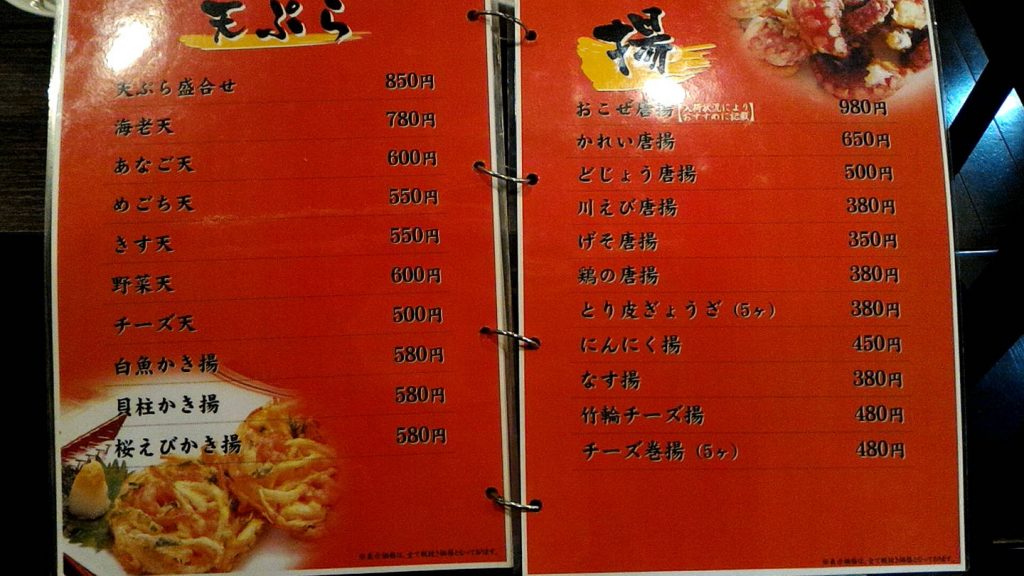 天ぷら
天ぷら盛合せ 850円
海老天 780円
あなご天 600円
めごち天 550円
きす天 550円
野菜天 600円
チーズ天 500円
白魚かき揚 580円
貝柱かき揚 580円
桜えびかき揚 580円
※表示価格は、全て税抜き価格となっております。
揚
おこぜ唐揚【入荷状況により おすすめに記載】 980円
かれい唐揚 650円
どじょう唐揚 500円
川えび唐揚 380円
げそ唐揚 350円
鶏の唐揚 380円
とり皮ぎょうざ（5ヶ） 380円
にんにく揚 450円
なす揚 380円
竹輪チーズ揚 480円
チーズ巻揚（5ヶ） 480円
※表示価格は、全て税抜き価格となっております。